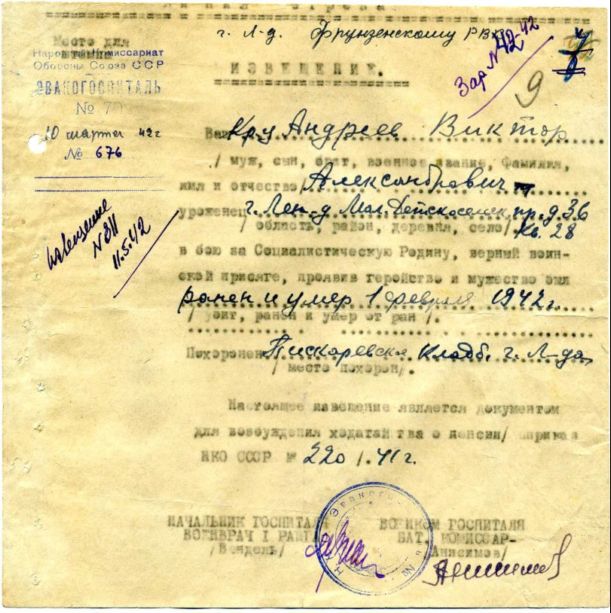 г. Л-д. Фрунзенскому РВК
Место для
Народный Комиссариат
Обороны Союза ССР
ЭВАКОГОСПИТАЛЬ
№ 70
10 марта 42 г.
№ 676
Зар. № 42-42
9
ИЗВЕЩЕНИЕ.
Ваш Кр-ц Андреев Виктор
/ муж, сын, брат, военное звание, Фамилия,
имя и отчество Александрович
уроженец г. Лен-д. Мал. Детскосельск. пр. д. 36
/ область, район, деревня, село / кв. 28
в бою за Социалистическую Родину, верный воин-
ской присяге, проявив геройство и мужество был
ранен и умер 1 февраля 1942 г.
/ убит, ранен и умер от ран /.
Похоронен Пискаревск. кладб. г. Л-да
/ место похорон/.
Извещение
№ 311
11.5.42
Настоящее извещение является документом
для возбуждения ходатайства о пенсии/ приказ
НКО СССР № 220 /.41 г.
НАЧАЛЬНИК ГОСПИТАЛЯ
ВОЕНВРАЧ I РАНГА
/Вендель/
ВОЕНКОМ ГОСПИТАЛЯ
БАТ. КОМИССАР-
/Анисимов/